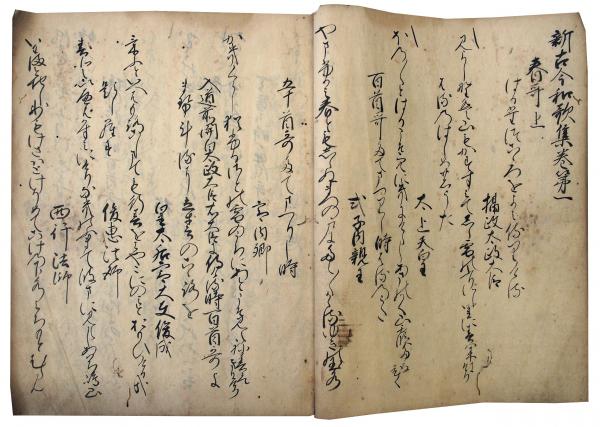 新古今和歌集巻第一
春哥上
はる
摂政太政大臣
みよし野は山もかすみてしら雪のふりにし里に春は来にけり
はるのはしめのうた
太上天皇
ほの〱とはるこそ空にきにけらしあまのかく山霞たなひく
百首哥たてまつりし時はるのうた
式子内親王
山ふかみ春ともしらぬ松の戸にたえ〱かゝる雪の玉水
五十首哥たてまつりし時
宮内卿
かきくらし猶ふるさとの雪のうちにあとこそ見えね春はきにけり
入道前関白太政大臣右大臣に侍ける時百首哥よ
ませ侍けるに立春の心を
皇太后宮大夫俊成
けふといへはもろこしまても行春を
題しらす
俊恵法師
春といへはかすみにけりなきのふまて波まに見えしあはち嶋山
西行法師
いはまとちし氷もけさはとけそめてこけのした水みちもとむらん